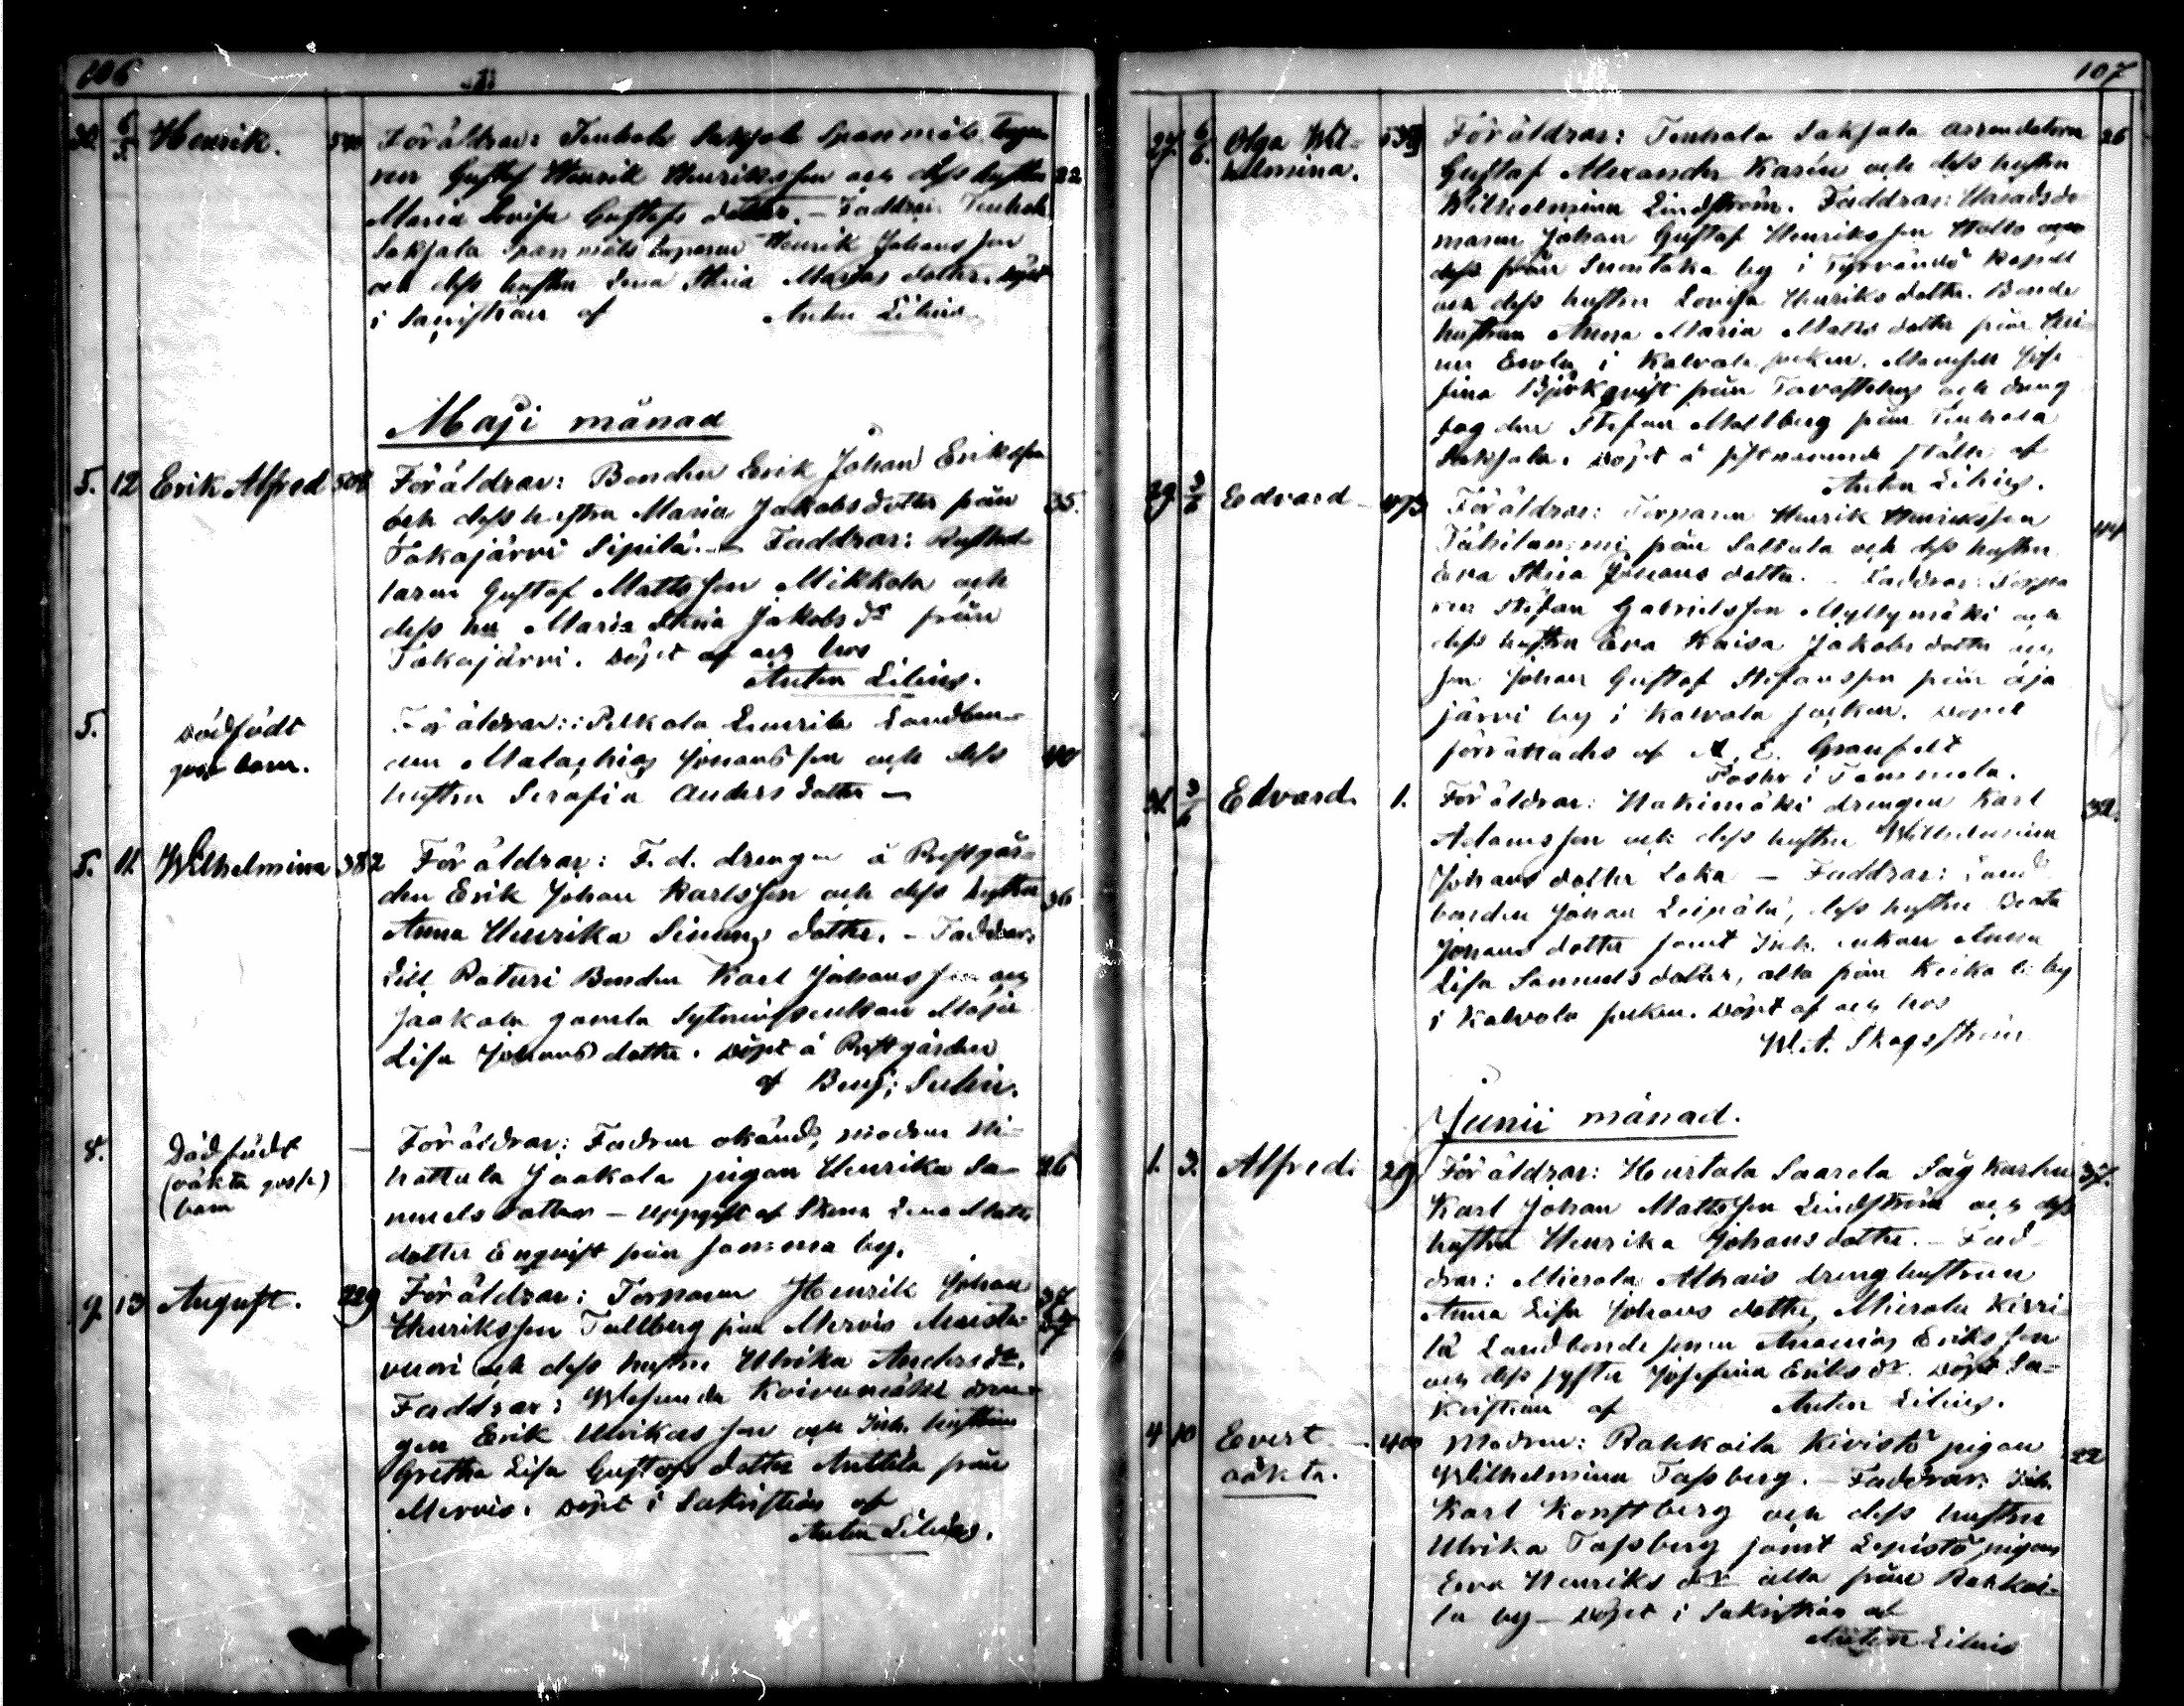 106
30. 5/5. Henrik. 540 Föräldrar: Tenhola Sakjala Spanmåls torpa-
ren Gustaf Henrik Henriksson och dess hustru 22
Maria Lovisa Gustafs dotter. — Faddrar: Tenhola
Sakjala Spanmåls torparen Henrik Johansson
och dess hustru Lena Stina Mattsdotter. döpt
i Sacristian af Anton Lilius.
Maji månad
5. 12 Erik Alfred 508 Föräldrar: Bonden Erik Johan Eriksson
och dess hustru Maria Jakobsdotter från 35.
Takajärvi Sipilä. — Faddrar: Rusthål-
laren Gustaf Mattsson Mikkola och
dess hu Maria Stina Jakobs dr från
Takajärvi. Döpt af och hos
Anton Lilius.
5. Dödfödt Föräldrar: Pelkola Lemrila Landbon-
goss barn. den Malachias Johansson och dess 40
hustru Serafia Anders dotter —
5. 11. Wilhelmina 382 Föräldrar: F.d. drengen å Prestgår-
den Erik Johan Karlsson och dess hustru 36
Anna Henrika Simons dotter. — Faddrar:
Lill Raturi Bonden Karl Johansson och
Jaakola gamla Sytningsenkan Maja
Lisa Johans dotter. Döpt å Prestgården
af Benj: Suhin.
8. Dödfödt — Föräldrar: Fadren okänd, modren Ni-
(oäkta goss) hattula Jaakola pigan Henrika Sa- 26
barn muels dotter — uppgift af Stina Lena Matts
dotter Enqvist från samma by.
9. 13 August. 229 Föräldrar: Torparen Henrik Johan
Henriksson Tallberg från Mervis Maisto
vuori och dess hustru Ulrika Anders dr.
Faddrar: Wesunda Koivumäki dren-
gen Erik Ulrikasson och Inh. hustrun
Gretha Lisa Gustafs dotter Anttila från
Mervis. Döpt i Sakristian af
Anton Lilius.
107
27. 6/6. Olga Wil- 539 Föräldrar: Tenhola Sakjala arrendatorn 26
helmina. Gustaf Alexander Karén och dess hustru
Wilhelmina Lindström. Faddrar: Häradsdo-
maren Johan Gustaf Henriksson
från Suontaka by i Tyrväntö kapell
och dess hustru Lovisa Henriks dotter. Bonde
hustrun Anna Maria Matts dotter från
Erola i Kalvola socken. Mamsell Jose-
fina Björkqvist från Tavastehus och dreng
fogden Stefan Mellberg från Tenhola
Sakjala. Döpt å sistnämnde ställe af
Anton Lilius.
29. 3/6 Edvard — 493 Föräldrar: Torparen Henrik Henriksson
Tähilänmi från Saltula och dess hustru 44
Eva Stina Johans dotter. — Faddrar: Torpa
ren Stefan Gabrielsson Myllymäki och
dess hustru Eva Kaisa Jakobs dotter och
son Johan Gustaf Stefansson från Äjä
järvi by i Kalvola socken. Dopet
förrättades af A. E. Granfelt
Pastor i Tammela.
31. 3/6 Edvard. 1. Föräldrar: Hakimäki drengen Karl 32.
Adamsson och dess hustru Wilhelmina
Johans dotter Laka — Faddrar: Land
bonden Johan Leipälä, dess hustru Beata
Johans dotter samt Inh. enkan Anna
Lisa Samuels dotter, alla från Keikala by
i Kalvola socken. Döpt af och hos
W. A. Skogström
Junii månad.
1. 3. Alfred. 29 Föräldrar: Hurtala Saarela Såg karlen 37.
Karl Johan Mattsson Lindström och dess
hustru Henrika Johans dotter. — Fad-
drar: Mierola Alhais drenghustrun
Anna Lisa Johans dotter, Mierola Kirri-
lä Landbonde sonen Ananias Eriksson
och dess syster Josefina Eriks dr. Döpt i Sa-
kristian af Anton Lilius.
4 10 Evert — 400 Modren: Rahkoila Kivistö pigan
oäkta. Wilhelmina Tassberg. — Faddrar: Inh. 22
Karl Konstberg och dess hustru
Ulrika Tassberg samt Lepistö pigan
Eva Henriks dr alla från Rahkoi-
la by — Döpt i Sakristian af
Anton Lilius